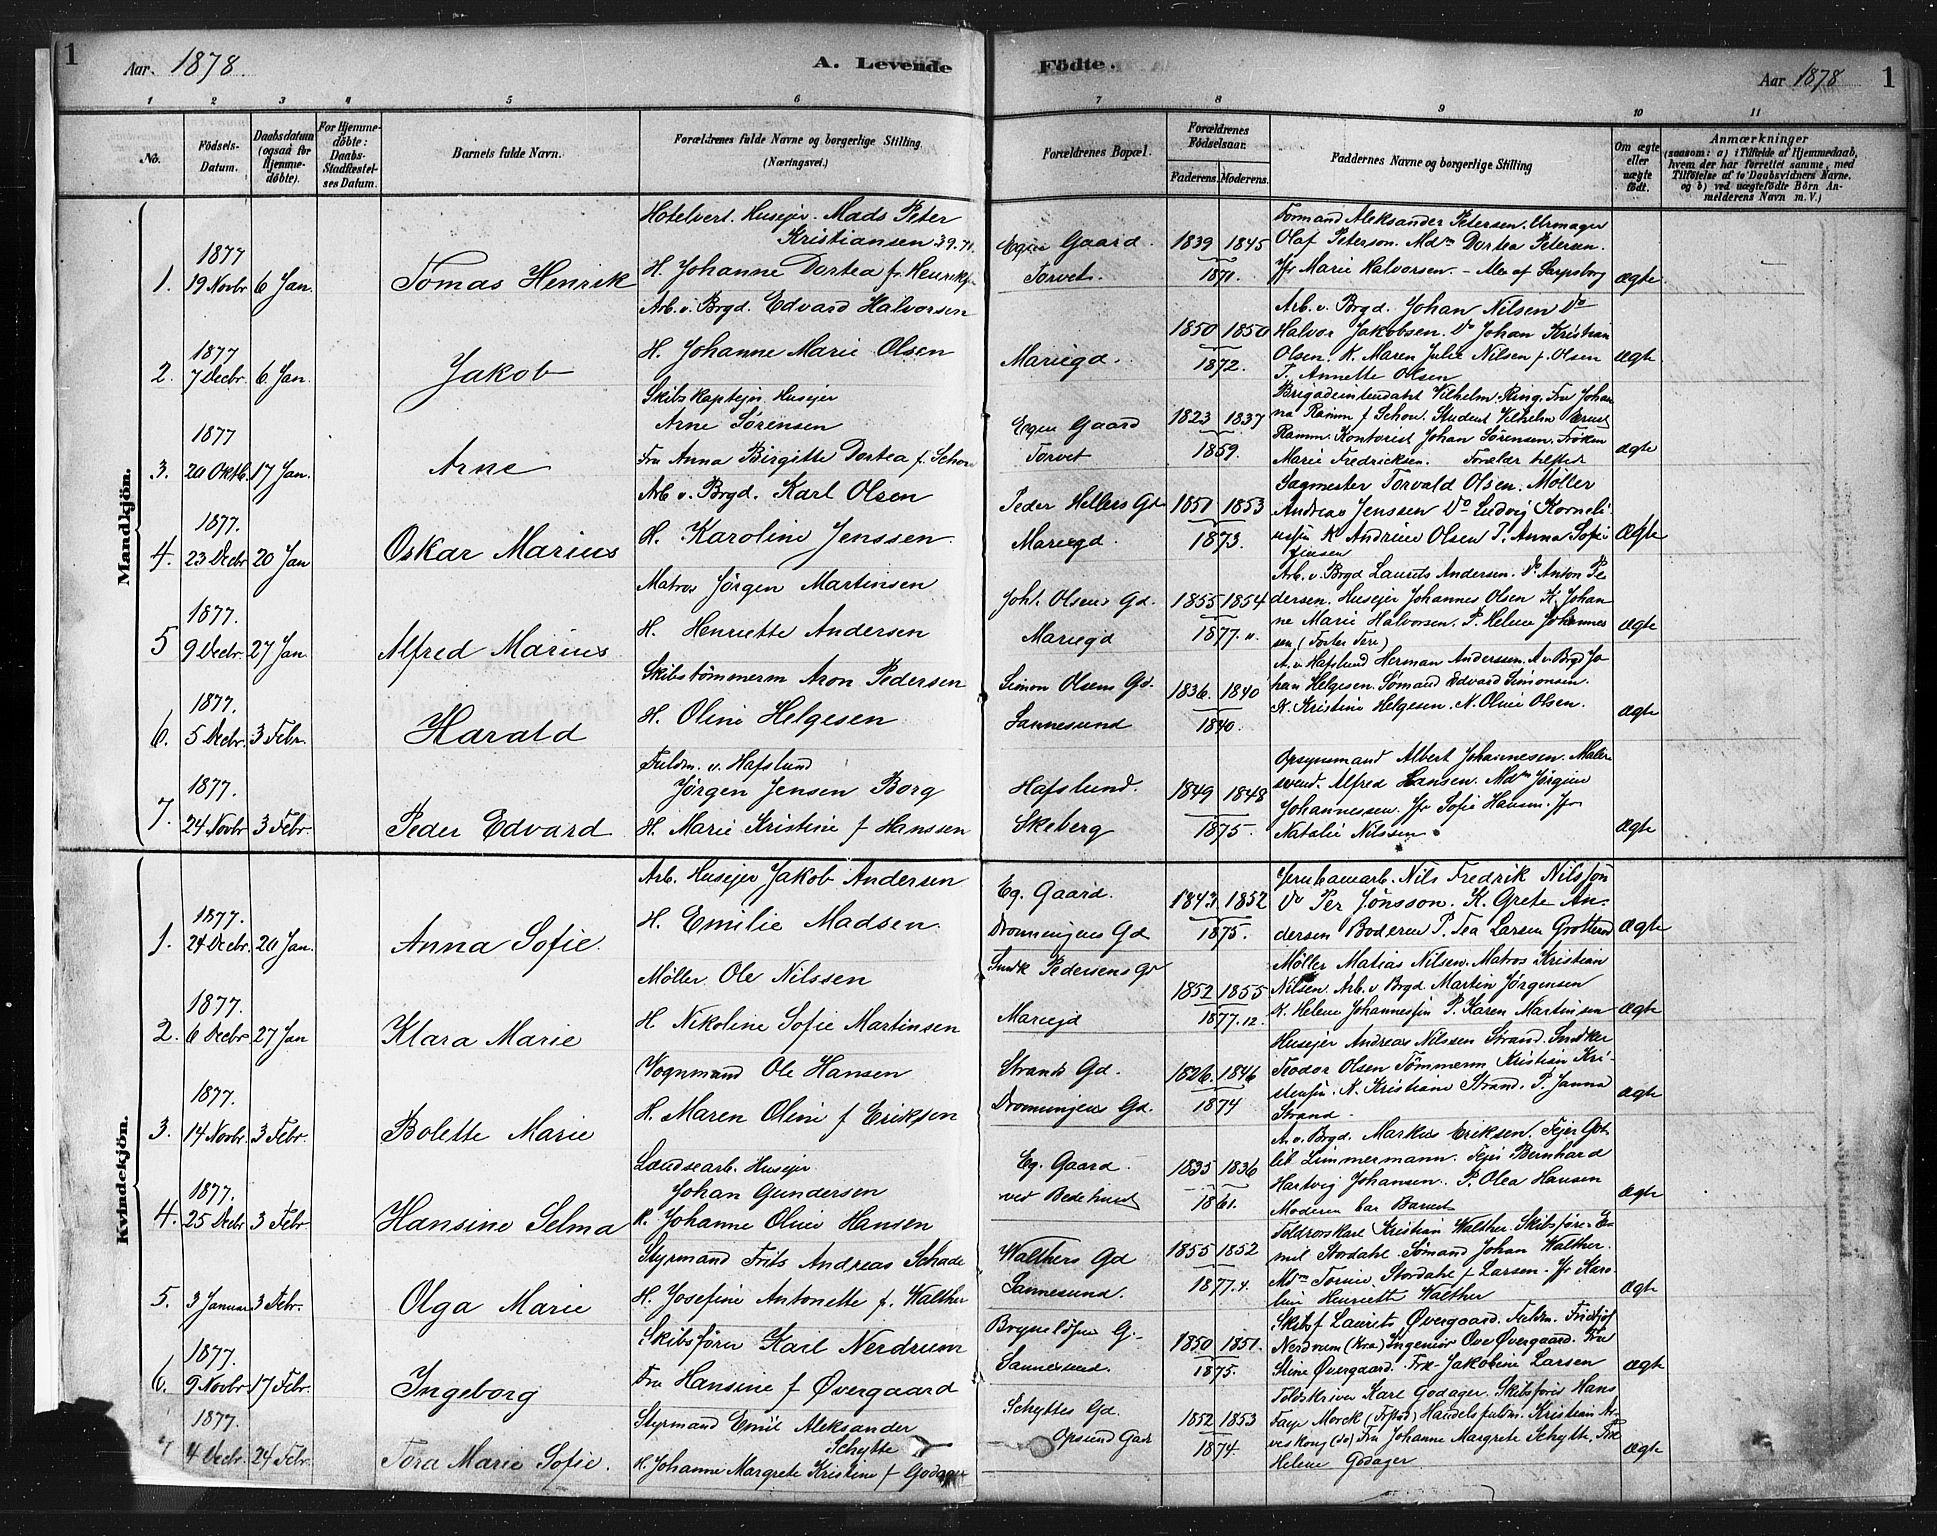 1
Aar. 1878.
A. Levende Fødte.
Aar 1878
1
1 2 3 4 5 6 7 8 9 10 11
No.
Fødsels-Datum.
Daabsdatum (ogsaa for Hjemmedøbte).
For Hjemmedøbte: Daabs-Stadfæstelses Datum.
Barnets fulde Navn.
Forældrenes fulde Navne og borgerlige Stilling. (Næringsvei.)
Forældrenes Bopæl.
Forældrenes Fødselsaar.
Faderens. Moderens.
Faddernes Navne og borgerlige Stilling
Om ægte eller uægte født.
Anmærkninger
(saasom: a) i Tilfælde af Hjemmedaab, hvem der har forrettet samme, med Tilføielse af to Daabsvidners Navne, og b) ved uægtefødte Børn Anmelderens Navn m. V.)
Mandkjøn.
1. 1877 19 Novbr 6 Jan. Tomas Henrik
Hotelvert. Husejer. Mads Peter
Kristiansen 39.71.
H. Johanne Dortea f. Henriksen
Egen Gaard.
Torvet.
1839 1845
1871.
Formand Aleksander Petersen. Urmager
Olaf Peterson. Mdm Dortea Petersen.
Jfr Marie Halvorsen. - Alle af Sarpsborg
ægte
2. 1877 7 Decbr. 6 Jan. Jakob
Arb. v. Brgd. Edvard Halvorsen
H. Johanne Marie Olsen
Mariegd.
1850 1850
1872.
Arb. v. Brgd. Johan Nilsen Do
Halvor Jakobsen. Do Johan Kristian
Olsen. K. Maren Julie Nilsen f. Olsen
P. Annette Olsen
ægte
3. 1877 20 Oktb. 17 Jan. Arne
Skibskaptejn. Husejer
Arne Sørensen
Fru Anna Birgitte Dortea f. Schou
Egen Gaard
Torvet
1823 1837
1859.
Brigadeintendant Vilhelm Ring. Fru Johan
na Ramm f Schou. Student Vilhelm Ernst
Ramm. Kontorist Johan Sørensen. Frøken
Marie Fredricksen.
ægte
4. 1877. 23 Decbr 20 Jan Oskar Marius
Arb v. Brgd. Karl Olsen
H. Karoline Jenssen.
Peder Hellers Gd
Mariegd.
1851 1853
1873.
Sagmester Torvald Olsen. Møller
Andreas Jenssen Do Ludvig Korneli
ussen K Andrine Olsen P. Anna Sofie
Jensen
ægte
5 1877. 9 Decbr. 27 Jan Alfred Marius
Matros Jørgen Martinsen
H. Henriette Andersen
Joh. Olsens Gd.
Mariegd
1855 1854
1877. 11.
Arb. v. Brgd Laurits Andersen. Do Anton Pe
dersen. Husejer Johannes Olsen K. Johan
ne Marie Halvorsen. P. Helene Johannes
sen
ægte
6. 1877. 5 Decbr. 3 Febr. Harald
Skibstømmerm Aron Pedersen
H. Oline Helgesen
Simon Olsens Gd.
Sannesund
1836. 1840
1840.
A. v. Hafslund Herman Anderssen. A v. Brgd Jo
han Helgesen. Sømand Edvard Simonsen.
K. Kristine Helgesen. N. Oline Olsen.
ægte
7. 1877. 24 Novbr 3 Febr. Peder Edvard
Fuldm. v. Hafslund
Jørgen Jensen Borg
H. Marie Kristine f Hanssen
Hafslund.
Skeberg
1849 1848
1875.
Opsynsmand Albert Johannesen. Maler
svend. Alfred Hansen. Mdm Jørgine
Johannessen. Jfr Sofie Hansen. Jfr
Natalie Nilssen.
ægte
Kvindekjøn.
1. 1877. 24 Decbr. 20 Jan. Anna Sofie.
Arb. Husejer Jakob Andersen
H. Emilie Madsen.
Eg. Gaard.
Dronningens Gd
1847 1852
1875.
Jernbanearb. Nils Fredrik Nilsson
Do Per Jønsson. K. Grete An-
dersen Boderen P. Tea Larsen Grotterød
ægte
2. 1877. 6 Decbr 27 Jan Klara Marie
Møller Ole Nilssen
H. Nikoline Sofie Martinsen
Snedk Pedersens Gd
Mariegd
1852 1855
1877. 12.
Møller Matias Nilsen. Matros Kristian
Nilsen. Arb. v Brgd Martin Jørgensen
K. Helene Johannessen P. Karen Martinsen
ægte
3. 1877. 14 Novbr. 3 Febr. Bolette Marie
Vognmand Ole Hansen
H. Maren Oline f Eriksen
Strands Gd.
Dronningens Gd.
1826. 1846
1874
Husejer Andreas Nilssen Strand. Snedker
Teodor Olsen Tømmerm Kristian Kri-
stensen. N. Kristiane Strand. P. Janna
Strand.
ægte
4. 1877. 25 Decbr 3 Febr Hansine Selma
Landsearb. Husejer.
Johan Gundersen
K. Johanne Oline Hansen
Eg. Gaard.
ved Bedehuset
1835 1836
1861.
A. v. Brgd. Markus Eriksen. Fejer Got
lib Limmermann. Fejer Bernhard
Hartvig Johansen. P. Olea Hansen
Moderen bar Barnet
ægte
5. 3 Januar 3 Febr. Olga Marie
Styrmand Frits Andreas Schade
H. Josefine Antonette f. Walther
Walthers Gd
Sannesund.
1855 1852
1877.
Toldrorskarl Kristian Walther. Skibsfører E-
mil Stordahl. Sømand Johan Walther.
Mdm Torine Stordahl f Larsen. Jfr Karo
line Henriette Walther
ægte
6. 1877. 9 Novbr 17 Febr. Ingeborg
Skibsfører Karl Nerdrum
Fru Hansine f Øvergaard
Sannesund.
1850 1851.
1875.
Skibsf Laurits Øvergaard. Fuldm. Fridtjof
Nerdrum (Kra) Ingeniør Ove Øvergaard. Fru
Stine Øvergaard. Frk. Jakobine Larsen
ægte
7 1877. 4 Decbr. 24 Febr. Tora Marie Sofie.
Styrmand Emil Aleksander
Schytte
H. Johanne Margrete Kristine f Godager
Schyttes Gd.
Opsund Gade
1852 1853
1874.
Toldskriver Karl Godager. Skibsfører Hans
Faye Morck Handelsfuldm. Kristian
(do) Fru Johanne Margrete Schytte. Frk
Helene Godager
ægte